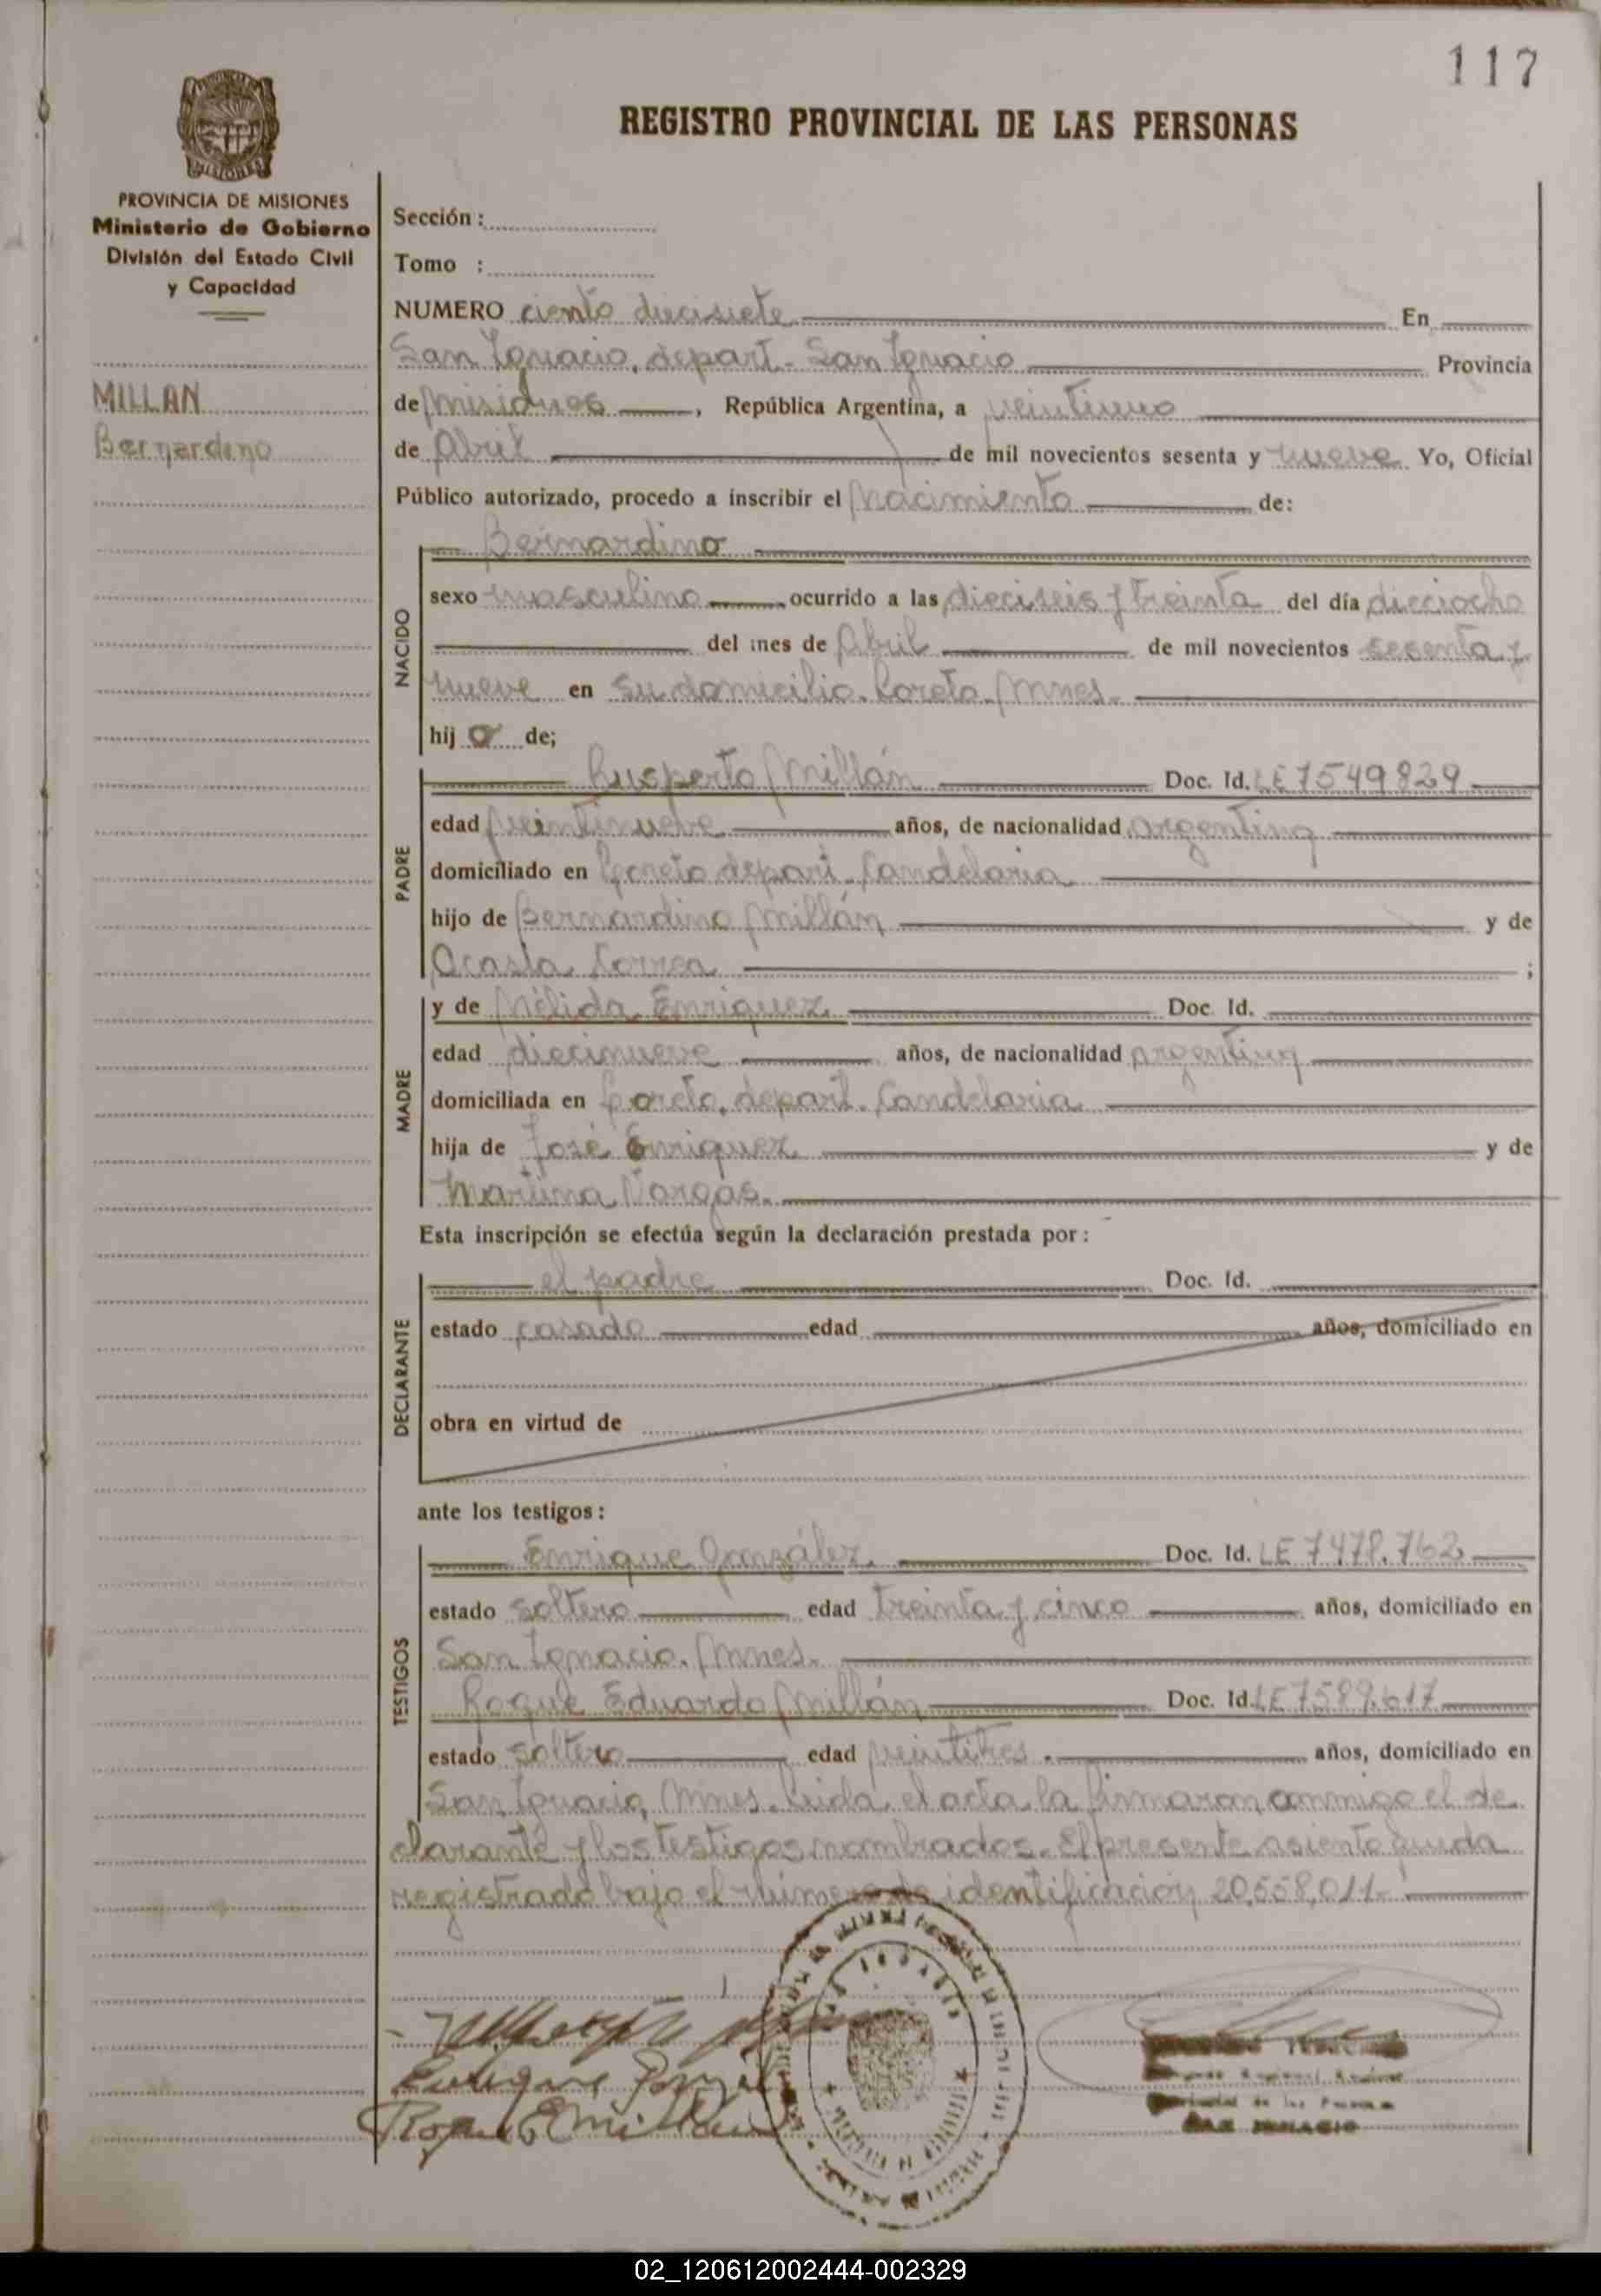 117
REGISTRO PROVINCIAL DE LAS PERSONAS
PROVINCIA DE MISIONES
Ministerio de Gobierno
División del Estado Civil
y Capacidad
MILLAN
Bernardino
Sección :
Tomo :
NUMERO ciento diecisiete En
San Ignacio, depart. San Ignacio Provincia
de Misiones, República Argentina, a veintiuno
de Abril de mil novecientos sesenta y nueve Yo, Oficial
Público autorizado, procedo a inscribir el Nacimiento de:
NACIDO
Bernardino
sexo masculino ocurrido a las dieciseis y treinta del día dieciocho
del mes de Abril de mil novecientos sesenta y
nueve en su domicilio. Loreto. Mnes.
hij o de;
PADRE
Millán Doc. Id. LE 7549829
edad veintinueve años, de nacionalidad argentina
domiciliado en Loreto depart. Candelaria
hijo de Bernardino Millán y de
Correa ;
MADRE
y de Nélida Enriquez Doc. Id.
edad diecinueve años, de nacionalidad argentina
domiciliada en Loreto, depart. Candelaria
hija de José Enriquez y de
Martina Vargas.
Esta inscripción se efectúa según la declaración prestada por :
DECLARANTE
el padre Doc. Id.
estado casado edad años, domiciliado en
obra en virtud de
ante los testigos :
TESTIGOS
Enrique González. Doc. Id. LE 7478.762
estado soltero edad treinta y cinco años, domiciliado en
San Ignacio. Mnes.
Roque Eduardo Millán Doc. Id. LE 7589.617
estado soltero edad veintitres. años, domiciliado en
San Ignacio, Mnes. Leida el acta la firmaron conmigo el de
clarante y los testigos nombrados. El presente asiento queda
registrado bajo el número de identificación 20,558,011.
Enrique
Roque E Millan
SAN IGNACIO
02_120612002444-002329